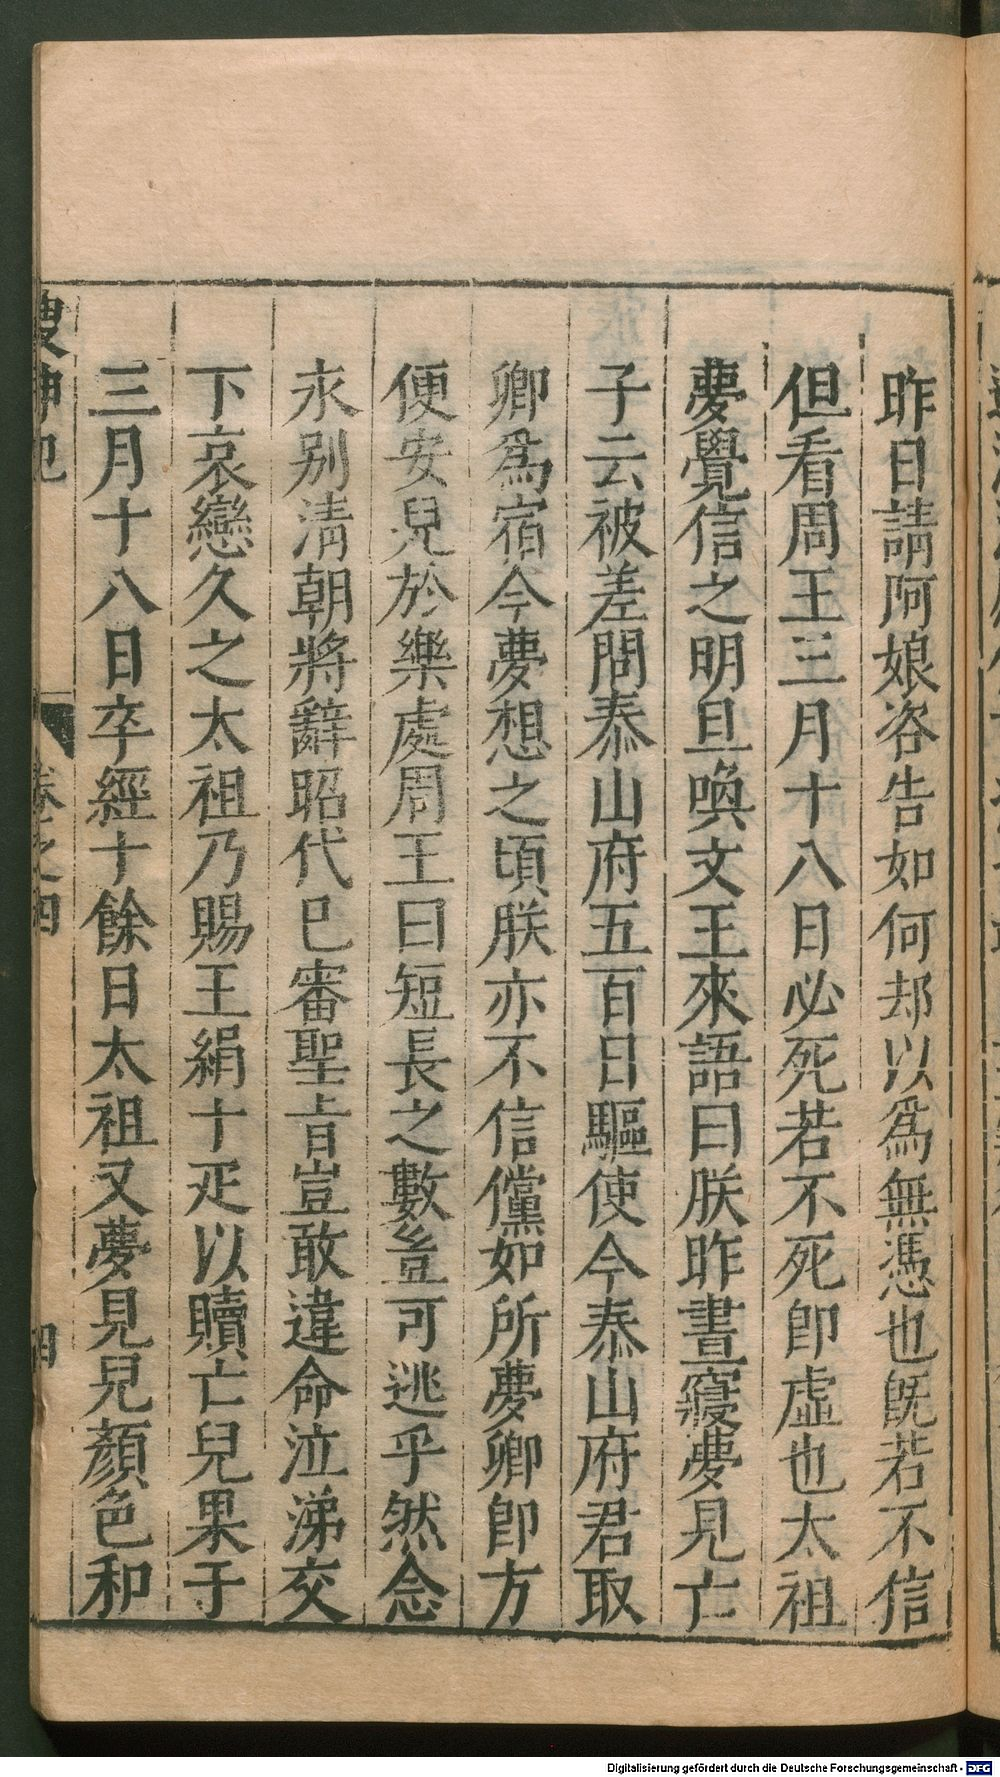 昨日請阿娘咨告如何却以爲無憑也旣若不信
但看周王三月十八日必死若不死卽虛也太祖
夢覺信之明旦喚文王來語曰朕昨晝寢夢見亡
子云被差問泰山府五百日驅使今泰山府君取
卿爲宿今夢想之頃朕亦不信儻如所夢卿卽方
便安兒於樂處周王曰短長之數豈可逃乎然念
永别清朝將辭昭代已審聖旨豈敢違命泣涕交
下哀戀久之太祖乃賜王絹十疋以贖亡兒果于
三月十八日卒經十餘日太祖又夢見兒顏色和
搜神記
卷之四
四
Digitalisierung gefördert durch die Deutsche Forschungsgemeinschaft - DFG